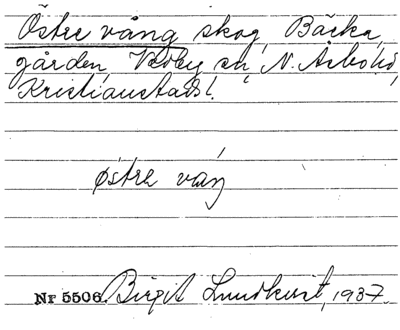 Östre vång skog, Bäcka,
gården, Visby sn, N. Åsbo hd,
Kristianstads l.
östre váŋ
Nr 5506 Birgit Lundkvist, 1937.